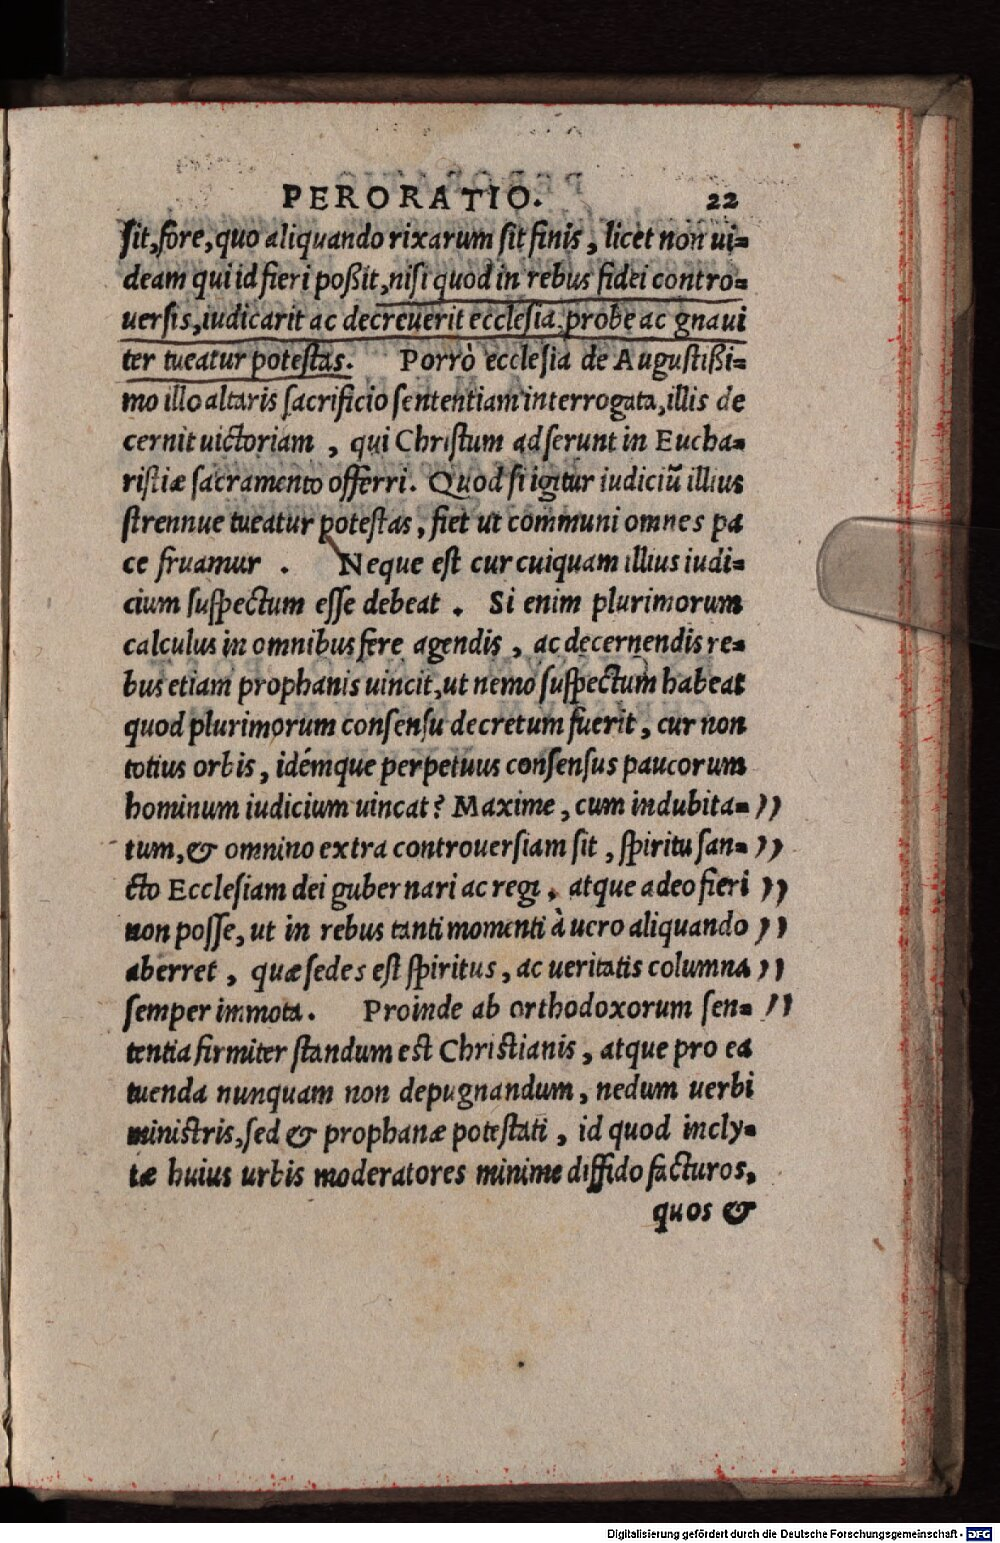 PERORATIO. 22
sit, fore, quo aliquando rixarum sit finis, licet non ui-
deam qui id fieri poßit, nisi quod in rebus fidei contro-
uersis, iudicarit ac decreuerit ecclesia, probe ac gnaui
ter tueatur potestas. Porrò ecclesia de Augustißi-
mo illo altaris sacrificio sententiam interrogata, illis de
cernit uictoriam, qui Christum adserunt in Eucha-
ristiæ sacramento offerri. Quod si igitur iudiciũ illius
strennue tueatur potestas, fiet ut communi omnes pa
ce fruamur. Neque est cur cuiquam illius iudi-
cium suspectum esse debeat. Si enim plurimorum
calculus in omnibus fere agendis, ac decernendis re-
bus etiam prophanis uincit, ut nemo suspectum habeat
quod plurimorum consensu decretum fuerit, cur non
totius orbis, idémque perpetuus consensus paucorum
hominum iudicium uincat? Maxime, cum indubita- ))
tum, & omnino extra controuersiam sit, spiritu san- ))
cto Ecclesiam dei gubernari ac regi, atque adeo fieri ))
non posse, ut in rebus tanti momenti à uero aliquando ))
aberret, quæ sedes est spiritus, ac ueritatis columna ))
semper immota. Proinde ab orthodoxorum sen- ))
tentia firmiter standum est Christianis, atque pro ea
tuenda nunquam non depugnandum, nedum uerbi
ministris, sed & prophanæ potestati, id quod incly-
tæ huius urbis moderatores minime diffido facturos,
quos &
Digitalisierung gefördert durch die Deutsche Forschungsgemeinschaft - DFG